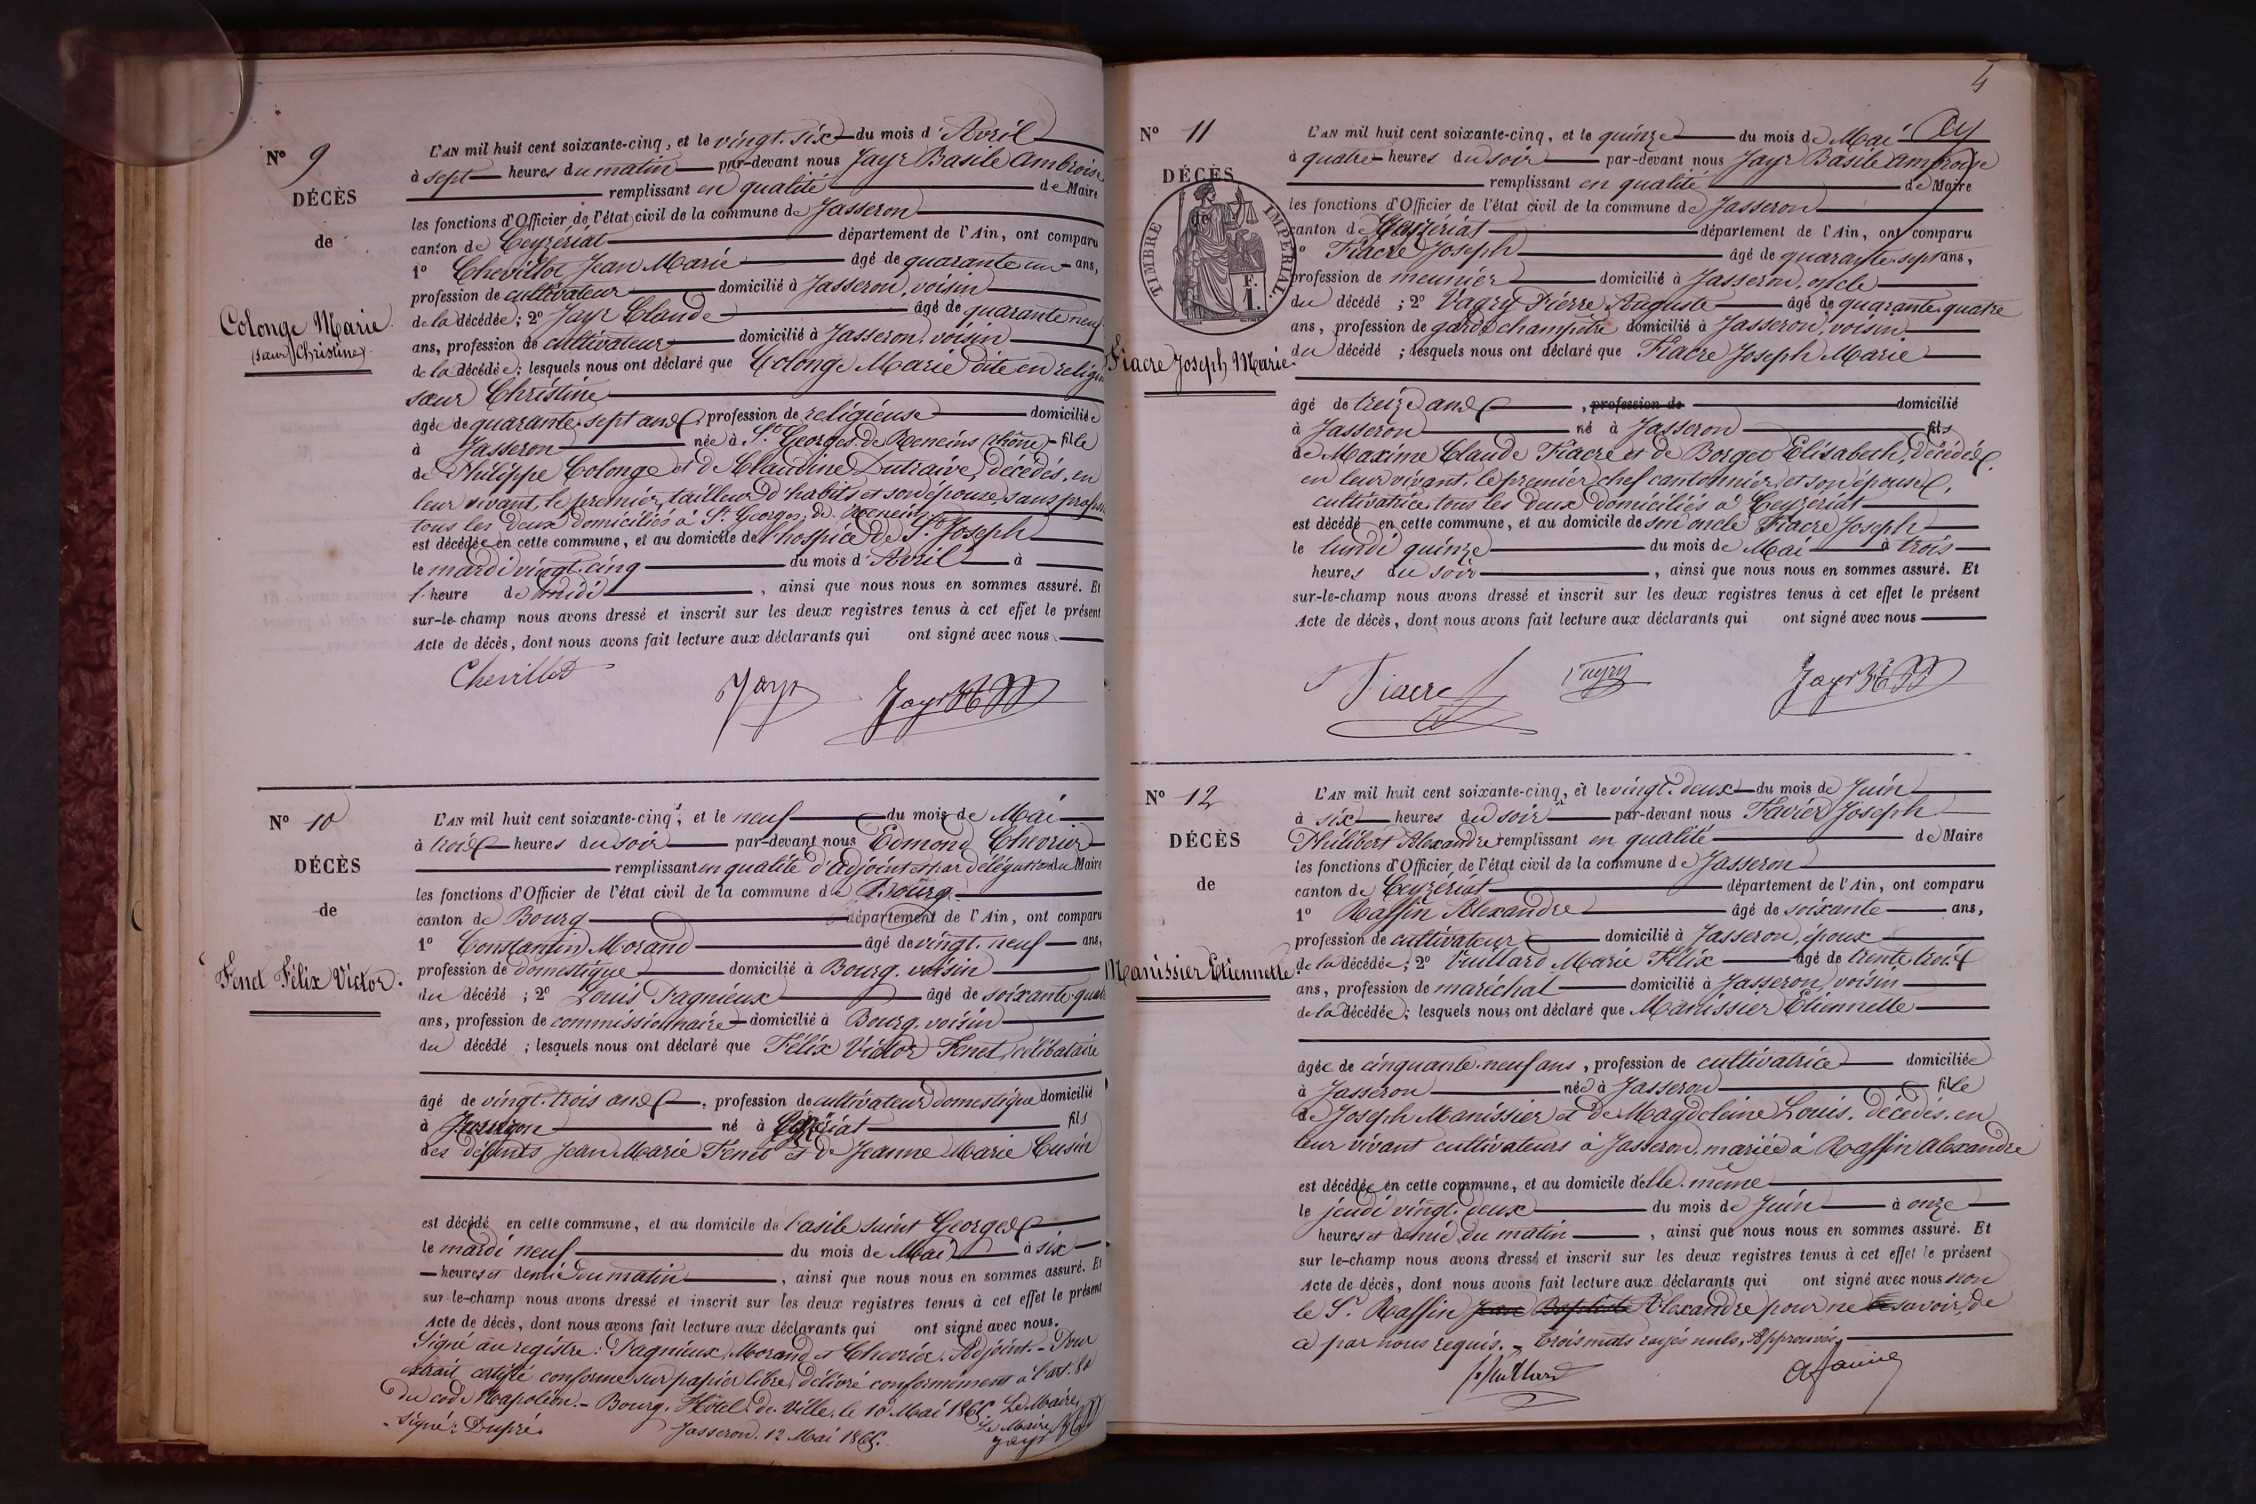 N° 9
DÉCÈS
de
Colonge Marie
(sœur Christine)
L'AN mil huit cent soixante-cinq, et le vingt-six du mois d'Avril
à sept heures du matin par-devant nous Jayr Basile Ambroise
remplissant en qualité de Maire
les fonctions d'Officier de l'état civil de la commune de Jasseron
canton de Ceyzériat département de l'Ain, ont comparu
1° Chevillot Jean Marie âgé de quarante un ans,
profession de cultivateur domicilié à Jasseron, voisin
de la décédée; 2° Jayr Claude âgé de quarante neuf
ans, profession de cultivateur domicilié à Jasseron, voisin
de la décédée; lesquels nous ont déclaré que Colonge Marie dite en religion
sœur Christine
âgée de quarante-sept ans, profession de religieuse domiciliée
à Jasseron née à St Georges de Reneins (Rhône) fille
de Philippe Colonge et de Claudine Dutraive, décédés, en
leur vivant, le premier, tailleur d'habits et son épouse, sans profession
tous les deux domiciliés à St Georges de Reneins
est décédée en cette commune, et au domicile de l'hospice de St Joseph
le mardi vingt-cinq du mois d'Avril à
1 heure de midi, ainsi que nous nous en sommes assuré. Et
sur-le-champ nous avons dressé et inscrit sur les deux registres tenus à cet effet le présent
Acte de décès, dont nous avons fait lecture aux déclarants qui ont signé avec nous.
Chevillot Jayr Jayr
N° 10
DÉCÈS
de
Fenet Félix Victor.
L'AN mil huit cent soixante-cinq, et le neuf du mois de Mai
à trois heures du soir par-devant nous Edmond Chevrier
remplissant en qualité d'adjoint et par délégation du Maire
les fonctions d'Officier de l'état civil de la commune de Bourg
canton de Bourg département de l'Ain, ont comparu
1° Constantin Morand âgé de vingt-neuf ans,
profession de domestique domicilié à Bourg, voisin
du décédé; 2° Louis Pagnieux âgé de soixante quatre
ans, profession de commissionnaire domicilié à Bourg, voisin
du décédé; lesquels nous ont déclaré que Félix Victor Fenet, célibataire
âgé de vingt-trois ans, profession de cultivateur domestique domicilié
à né à fils
des défunts Jean Marie Fenet et de Jeanne Marie Cusin
est décédé en cette commune, et au domicile de l'asile saint Georges
le mardi neuf du mois de Mai à six
heures et demie du matin, ainsi que nous nous en sommes assuré. Et
sur-le-champ nous avons dressé et inscrit sur les deux registres tenus à cet effet le présent
Acte de décès, dont nous avons fait lecture aux déclarants qui ont signé avec nous.
Signé au registre: Pagnieux, Morand et Chevrier, Adjoint. - Pour
extrait certifié conforme sur papier libre, délivré conformément à l'art. 80
du code Napoléon. - Bourg, Hôtel de Ville, le 10 Mai 1865. Le Maire,
signé: Dupré. Jasseron, 12 Mai 1865. Le Maire
Jayr
4
N° 11
DÉCÈS
de
TIMBRE IMPÉRIAL.
F.
1.
Fiacre Joseph Marie
L'AN mil huit cent soixante-cinq, et le quinze du mois de Mai
à quatre heures du soir par-devant nous Jayr Basile Ambroise
remplissant en qualité de Maire
les fonctions d'Officier de l'état civil de la commune de Jasseron
canton de Ceyzériat département de l'Ain, ont comparu
1° Fiacre Joseph âgé de quarante-sept ans,
profession de meunier domicilié à Jasseron, oncle
du décédé; 2° Vagry Pierre Auguste âgé de quarante-quatre
ans, profession de garde champêtre domicilié à Jasseron, voisin
du décédé; lesquels nous ont déclaré que Fiacre Joseph Marie
âgé de treize ans, profession de domicilié
à Jasseron né à Jasseron fils
de Maxime Claude Fiacre et de Borget Elisabeth, décédés,
en leur vivant, le premier chef cantonnier, et son épouse,
cultivatrice tous les deux domiciliés à Ceyzériat
est décédé en cette commune, et au domicile de son oncle Fiacre Joseph
le lundi quinze du mois de Mai à trois
heures du soir, ainsi que nous nous en sommes assuré. Et
sur-le-champ nous avons dressé et inscrit sur les deux registres tenus à cet effet le présent
Acte de décès, dont nous avons fait lecture aux déclarants qui ont signé avec nous
Fiacre Vagry Jayr
N° 12
DÉCÈS
de
Manissier Etiennette.
L'AN mil huit cent soixante-cinq, et le vingt-deux du mois de Juin
à six heures du soir par-devant nous Favier Joseph
Philibert Alexandre remplissant en qualité de Maire
les fonctions d'Officier de l'état civil de la commune de Jasseron
canton de Ceyzériat département de l'Ain, ont comparu
1° Raffin Alexandre âgé de soixante ans,
profession de cultivateur domicilié à Jasseron, époux
de la décédée; 2° Vuillard Marie Félix âgé de trente-trois
ans, profession de maréchal domicilié à Jasseron, voisin
de la décédée; lesquels nous ont déclaré que Manissier Etiennette
âgée de cinquante-neuf ans, profession de cultivatrice domiciliée
à Jasseron née à Jasseron fille
de Joseph Manissier et de Magdeleine Louis, décédés, en
leur vivant cultivateurs à Jasseron, mariée à Raffin Alexandre
est décédée en cette commune, et au domicile d'elle-même
le jeudi vingt-deux du mois de Juin à onze
heures et demie du matin, ainsi que nous nous en sommes assuré. Et
sur le-champ nous avons dressé et inscrit sur les deux registres tenus à cet effet le présent
Acte de décès, dont nous avons fait lecture aux déclarants qui ont signé avec nous non
le Sr Raffin Jean Baptiste Alexandre pour ne le savoir, de
ce par nous requis. - Trois mots rayés nuls, Approuvés,
Vuillard